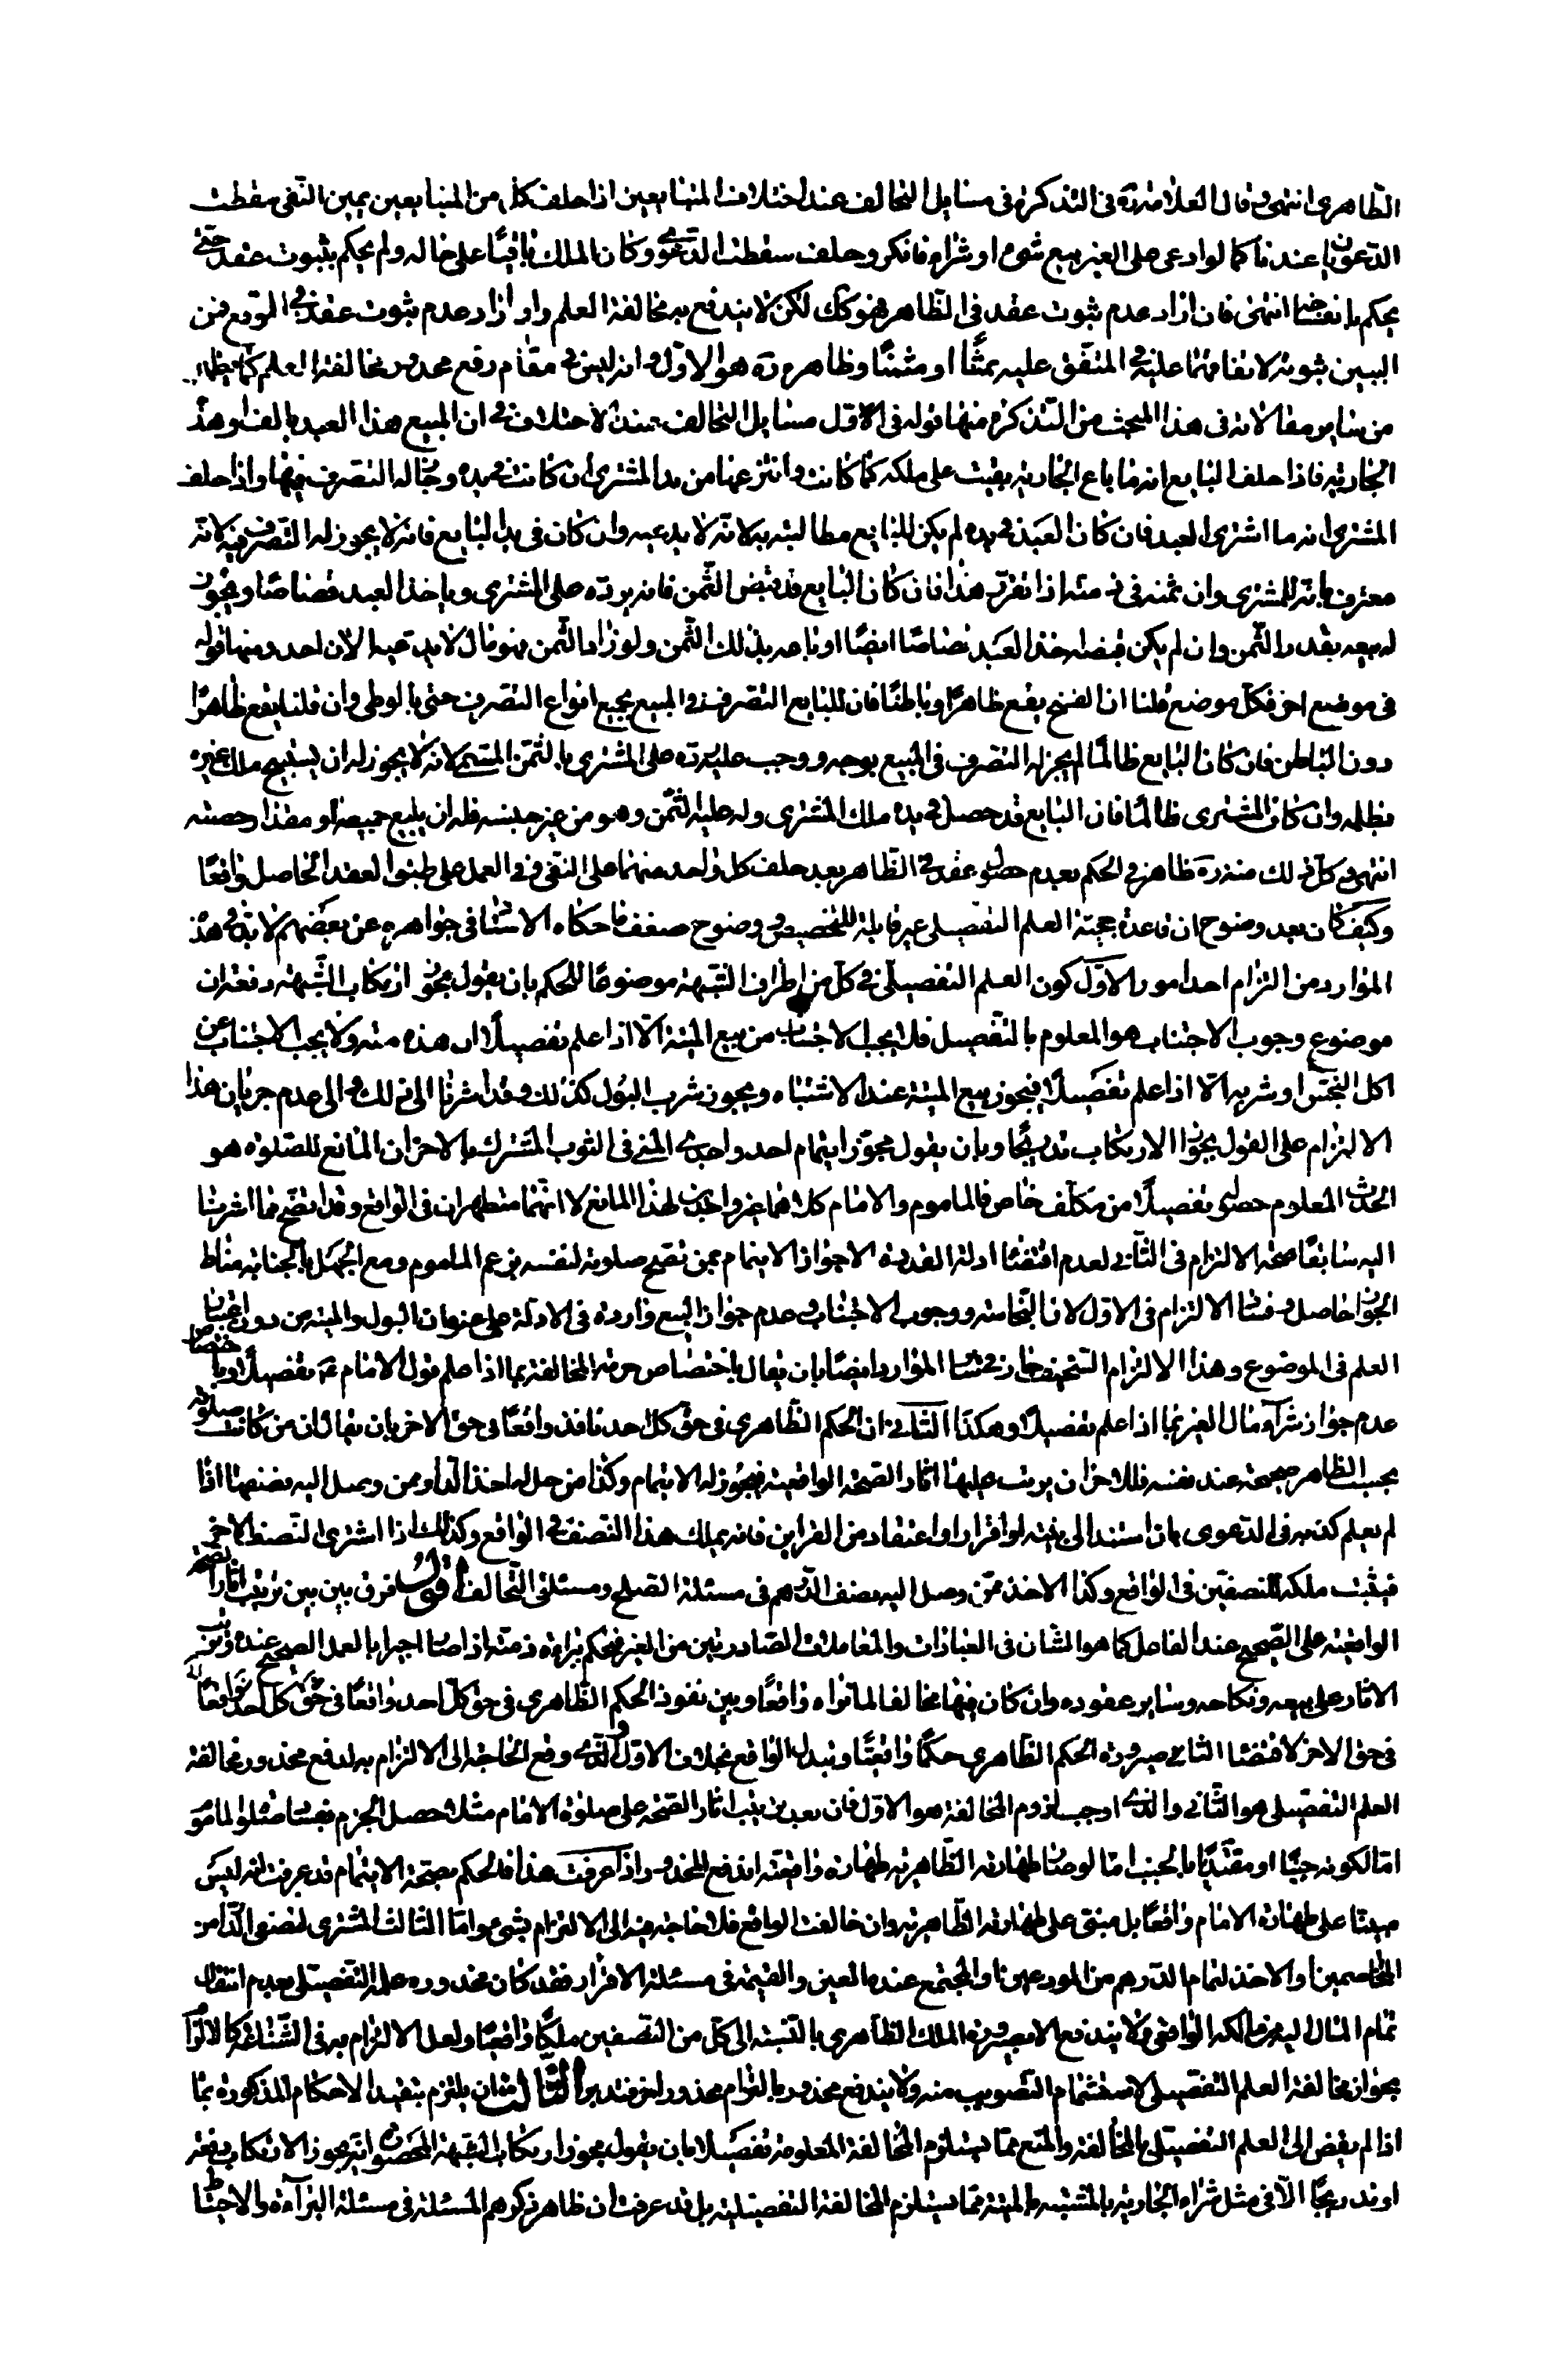 الظاهرى انتهى وقال العلامة ره فى التذكرة فى مسايل التحالف عند اختلاف المتبايعين اذا حلف كل من المتبايعين يمين النفى سقطت
الدعويان عندنا كما لو ادعى على الغير بيع شئ او شراه فانكر وحلف سقطت الدعوى وكان الملك باقيا على حاله ولم يحكم بثبوت عقد حتى
يحكم بانفساخه انتهى فان اراد عدم ثبوت عقد فى الظاهر فهو كك لكن لا يندفع به مخالفة العلم وان اراد عدم ثبوت عقد فى الواقع فمن
البين ثبوته لاتفاقهما عليه فى المتفق عليه ثمنا او مثمنا وظاهره ره هو الاول وانه ليس فى مقام رفع محذور مخالفة العلم كما يظهر
من ساير مقالاته فى هذا المبحث من التذكرة منها قوله فى الاول مسايل التحالف عند الاختلاف فى ان المبيع هذا العبد بالف او هذه
الجارية فاذا حلف البايع انه ما باع الجارية بقيت على ملكه كما كانت وانتزعها من يد المشترى ان كانت فى يده وجاز له التصرف فيها واذا حلف
المشترى انه ما اشترى العبد فان كان العبد فى يده لم يكن للبايع مطالبته به لانه لا يدعيه وان كان فى يد البايع فانه لا يجوز له التصرف فيه لانه
معترف بانه للمشترى وان ثمنه فى ذمته اذا تقرر هذا فان كان البايع قد قبض الثمن فانه يرده على المشترى وياخذ العبد قصاصا ويجوز
له بيعه بقدر الثمن وان لم يكن قبضه اخذ العبد قصاصا ايضا او باعه بذلك الثمن ولو زاد الثمن فهو مال لا يدعيه الان احد ومنها قوله
فى موضع اخر فكل موضع قلنا ان الفسخ يقع ظاهرا وباطنا فان للبايع التصرف فى المبيع بجميع انواع التصرف حتى بالوطى وان قلنا يقع ظاهرا
دون الباطن فان كان البايع ظالما لم يجز له التصرف فى المبيع بوجه ووجب عليه رده على المشترى بالثمن المسمى لانه لا يجوز له ان يستبيح ملك غيره
بظلمه وان كان المشترى ظالما فان البايع قد حصل فى يده ملك المشترى وله عليه الثمن وهو من غير جنسه فله ان يبيع جميعه او مقدار حصته
انتهى وكل ذلك منه ره ظاهر فى الحكم بعدم حصول عقد فى الظاهر بعد حلف كل واحد منهما على النفى فى العمل على طبق العقد الحاصل واقعا
وكيف كان بعد وضوح ان قاعدة حجية العلم التفصيلى غير قابلة للتخصيص ووضوح ضعف ما حكاه الاستاد فى جواهره عن بعضهم لا بد فى هذه
الموارد من التزام احد امور الاول كون العلم التفصيلى فى كل من اطراف الشبهة موضوعا للحكم بان يقول مجوز ارتكاب الشبهة دفعة ان
موضوع وجوب الاجتناب هو المعلوم بالتفصيل فلا يجب الاجتناب من بيع الميتة الا اذا علم تفصيلا ان هذه ميتة ولا يجب الاجتناب عن
اكل النجس او شربه الا اذا علم تفصيلا فيجوز بيع الميتة عند الاشتباه ويجوز شرب البول كذلك وقد اشرنا الى ذلك والى عدم جريان هذا
الالتزام على القول بجواز الارتكاب تدريجا وبان يقول مجوز ايتمام احد واجدى المنى فى الثوب المشترك بالاخر ان المانع للصلوة هو
الحدث المعلوم حصوله تفصيلا من مكلف خاص فالماموم والامام كلاهما غير واجدين لهذا المانع لا انهما متطهران فى الواقع وقد اتضح مما اشرنا
اليه سابقا صحة الالتزام فى الثانى لعدم اقتضا ادلة القدوة الا جواز الايتمام بمن تصح صلوته لنفسه بزعم الماموم ومع الجهل بالجنابة مناط
الجواز حاصل وفساد الالتزام فى الاول لان النجاسة ووجوب الاجتناب وعدم جواز البيع واردة فى الادلة على عنوان البول والميتة من دون اعتبار
العلم فى الموضوع وهذا الالتزام السخيف جار فى ساير الموارد ايضا بان يقال باختصاص حرمة المخالفة بما اذا علم قول الامام ع تفصيلا وباختصاص
عدم جواز شراء مال الغير بما اذا علم تفصيلا وهكذا الثانى ان الحكم الظاهرى فى حق كل احد نافذ واقعا فى حق الاخر بان يقال ان من كانت صلوته
بحسب الظاهر صحيحة عند نفسه فللاخر ان يرتب عليها اثار الصحة الواقعية فيجوز له الايتمام وكذا من حل له اخذ الدار ممن وصل اليه نصفها اذا
لم يعلم كذبه فى الدعوى بان استند الى بينة او اقرار او اعتقاد من القراين فانه يملك هذا النصف فى الواقع وكذلك اذا اشترى النصف الاخر
فيثبت ملكه للنصفين فى الواقع وكذا الاخذ ممن وصل اليه نصف الدرهم فى مسئلة الصلح ومسئلتى التحالف اقول فرق بين بين ترتيب اثار الصحة
الواقعية على الصحيح عند الفاعل كما هو الشان فى العبادات والمعاملات الصادرتين من الغير فيحكم ببراءة ذمته اذا صار اجيرا بالعمل الصحيح عنده وترتيب
الاثار على بيعه ونكاحه وساير عقوده وان كان فيها مخالفا لما نراه واقعا وبين نفوذ الحكم الظاهرى فى حق كل احد واقعا فى حق كل احد واقعا
فى حق الاخر لاقتضا الثانى صيرورة الحكم الظاهرى حكما واقعيا وتبدل الواقع بخلاف الاول والذى وقع الحاجة الى الالتزام به لدفع محذور مخالفة
العلم التفصيلى هو الثانى والذى اوجب لزوم المخالفة هو الاول فان بعد ترتيب اثار الصحة على صلوة الامام مثلا حصل الجزم بفساد صلوة الماموم
اما لكونه جنبا او مقتديا بالجنب اما لو صار طهارته الظاهرية طهارة واقعية اندفع المحذور واذا عرفت هذا فالحكم بصحة الايتمام قد عرفت انه ليس
مبنيا على طهارة الامام واقعا بل مبنى على طهارته الظاهرية وان خالفت الواقع فلا حاجة فيه الى الالتزام بشئ واما الثالث المشترى لنصفى الدار من
المتخاصمين او الاخذ لتمام الدرهم من الودعيين او المجتمع عنده العين والقيمة فى مسئلة الاقرار فقد كان محذوره علمه التفصيلى بعدم انتقال
تمام المال اليه من مالكه الواقعى ولا يندفع الا بصيرورة الملك الظاهرى بالنسبة الى كل من النصفين ملكا واقعيا ولعل الالتزام به فى الشناعة كالالتزام
بجواز مخالفة العلم التفصيلى لاستشمام التصويب منه ولا يندفع محذور بالتزام محذور اخر فتدبر الثالث ان يلتزم بتقييد الاحكام المذكورة بما
اذا لم يفض الى العلم التفصيلى بالمخالفة والمنع مما يستلزم المخالفة المعلومة تفصيلا بان يقول مجوز ارتكاب الشبهة المحصورة انه يجوز الارتكاب دفعة
او تدريجا الا فى مثل شراء الجارية بالمشتبه بالميتة مما يستلزم المخالفة التفصيلية بل قد عرفت ان ظاهر ذكرهم المسئلة فى مسئلة البراءة والاحتياط